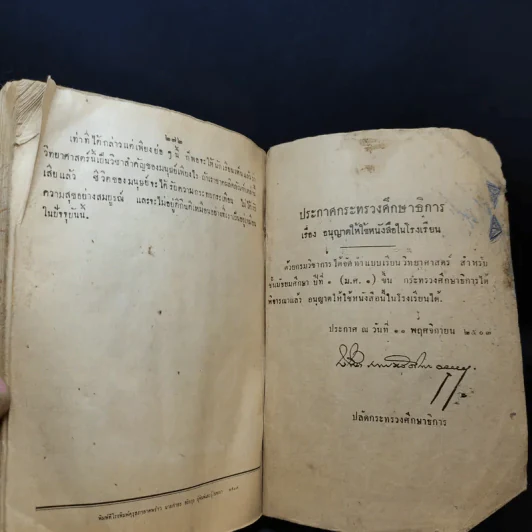 ๒๘๒
เท่าที่ได้กล่าวแต่เพียงย่อ ๆ นี้ ก็พอจะให้นักเรียนเห็นแล้วว่า
วิทยาศาสตร์นั้นเป็นวิชาสำคัญของมนุษย์เพียงไร ถ้าเราขาดผลิตผลทางวิทยาศาสตร์
เสียแล้ว ชีวิตของมนุษย์จะได้รับความกระทบกระเทือน ไม่ได้รับ
ความสุขอย่างสมบูรณ์ และจะไม่อยู่ดีกินดีเหมือนอย่างที่เราเป็นอยู่
ในปัจจุบันนี้
พิมพ์ที่โรงพิมพ์คุรุสภาลาดพร้าว
ประกาศกระทรวงศึกษาธิการ
เรื่อง อนุญาตให้ใช้หนังสือในโรงเรียน
ด้วยกรมวิชาการ ได้จัดทำแบบเรียนวิทยาศาสตร์ สำหรับ
ชั้นมัธยมศึกษา ปีที่ ๑ (ม.ศ. ๑) ขึ้น กระทรวงศึกษาธิการได้
พิจารณาแล้ว อนุญาตให้ใช้หนังสือนี้ในโรงเรียนได้
ประกาศ ณ วันที่ ๑๑ พฤศจิกายน ๒๕๐๓
ปลัดกระทรวงศึกษาธิการ